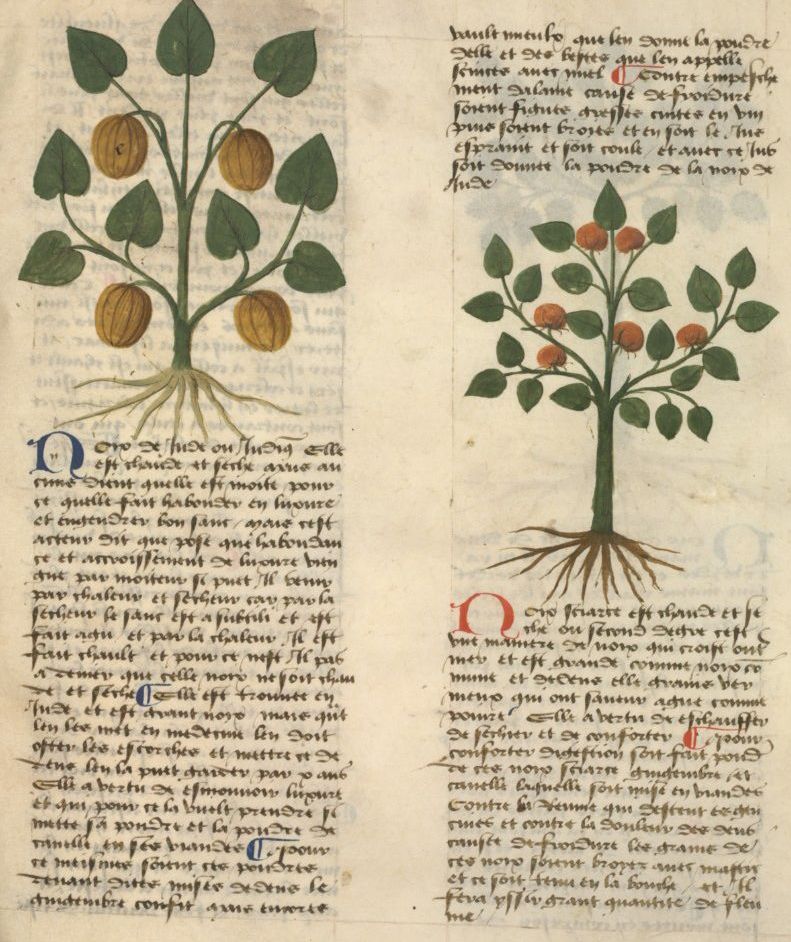 Noix de Jude ou Indiq̄ Elle
est chaude et seche mais au
cuns dient quelle est moite pour
ce quelle fait habonder en luxure
et engendrer bon sanc / mais cest
acteur dit que pose que habondan
ce et accroissement de luxure vien
gne par moiteur si puet Il venir
par chaleur et secheur car par la
secheur le sanc est asubtili et est
fait agu / et par la chaleur / Il est
fait chault et pour ce nest Il pas
a denier que celle noix ne soit chau
de et seche ¶ Elle est trouuee en
Jude et est grant noix mais qn̄t
len les met en medecine len doit
oster les escorches et mettre ce de
dens len la puet garder par x ans
Elle a vertu de esmouuoir luxure
et qui pour ce la vuelt prendre si
mette sa pouldre et la pouldre de
canelle en ses viandes ¶ Pour
ce meismes soient ces pouldres
deuant dites mises dedens le
gingembre confit mais encores
vault mieulx que len donne la pouldre
delle et des bestes que len appelle
scinces auec miel ¶ Contre empesche
ment dalaine cause de froidure
soient figues grasses cuites en vin
puis soient broyes et en soit le Jus
espraint et soit coule / et auec ce Jus
soit donnee la pouldre de la noix de
Jude
Noix sciarce est chaude et se
che ou second degre cest
vne maniere de noix qui croist oult
mer et est grande comme noix co
mune et dedens elle grains ver
meux qui ont saueur ague comme
poiure Elle a vertu de eschauffer
de sechier et de conforter ¶ Pour
conforter digestion soit fait pould
de ces noix sciarce gingembre et
canelle laquelle soit mise en viandes
Contre la reume qui descent es gen
ciues et contre la douleur des dens
causee de froidure les grains de
ces noix soient broyez auec mastic
et ce soit tenu en la bouche / et Il
fera yssir grant quantite de fleu
me